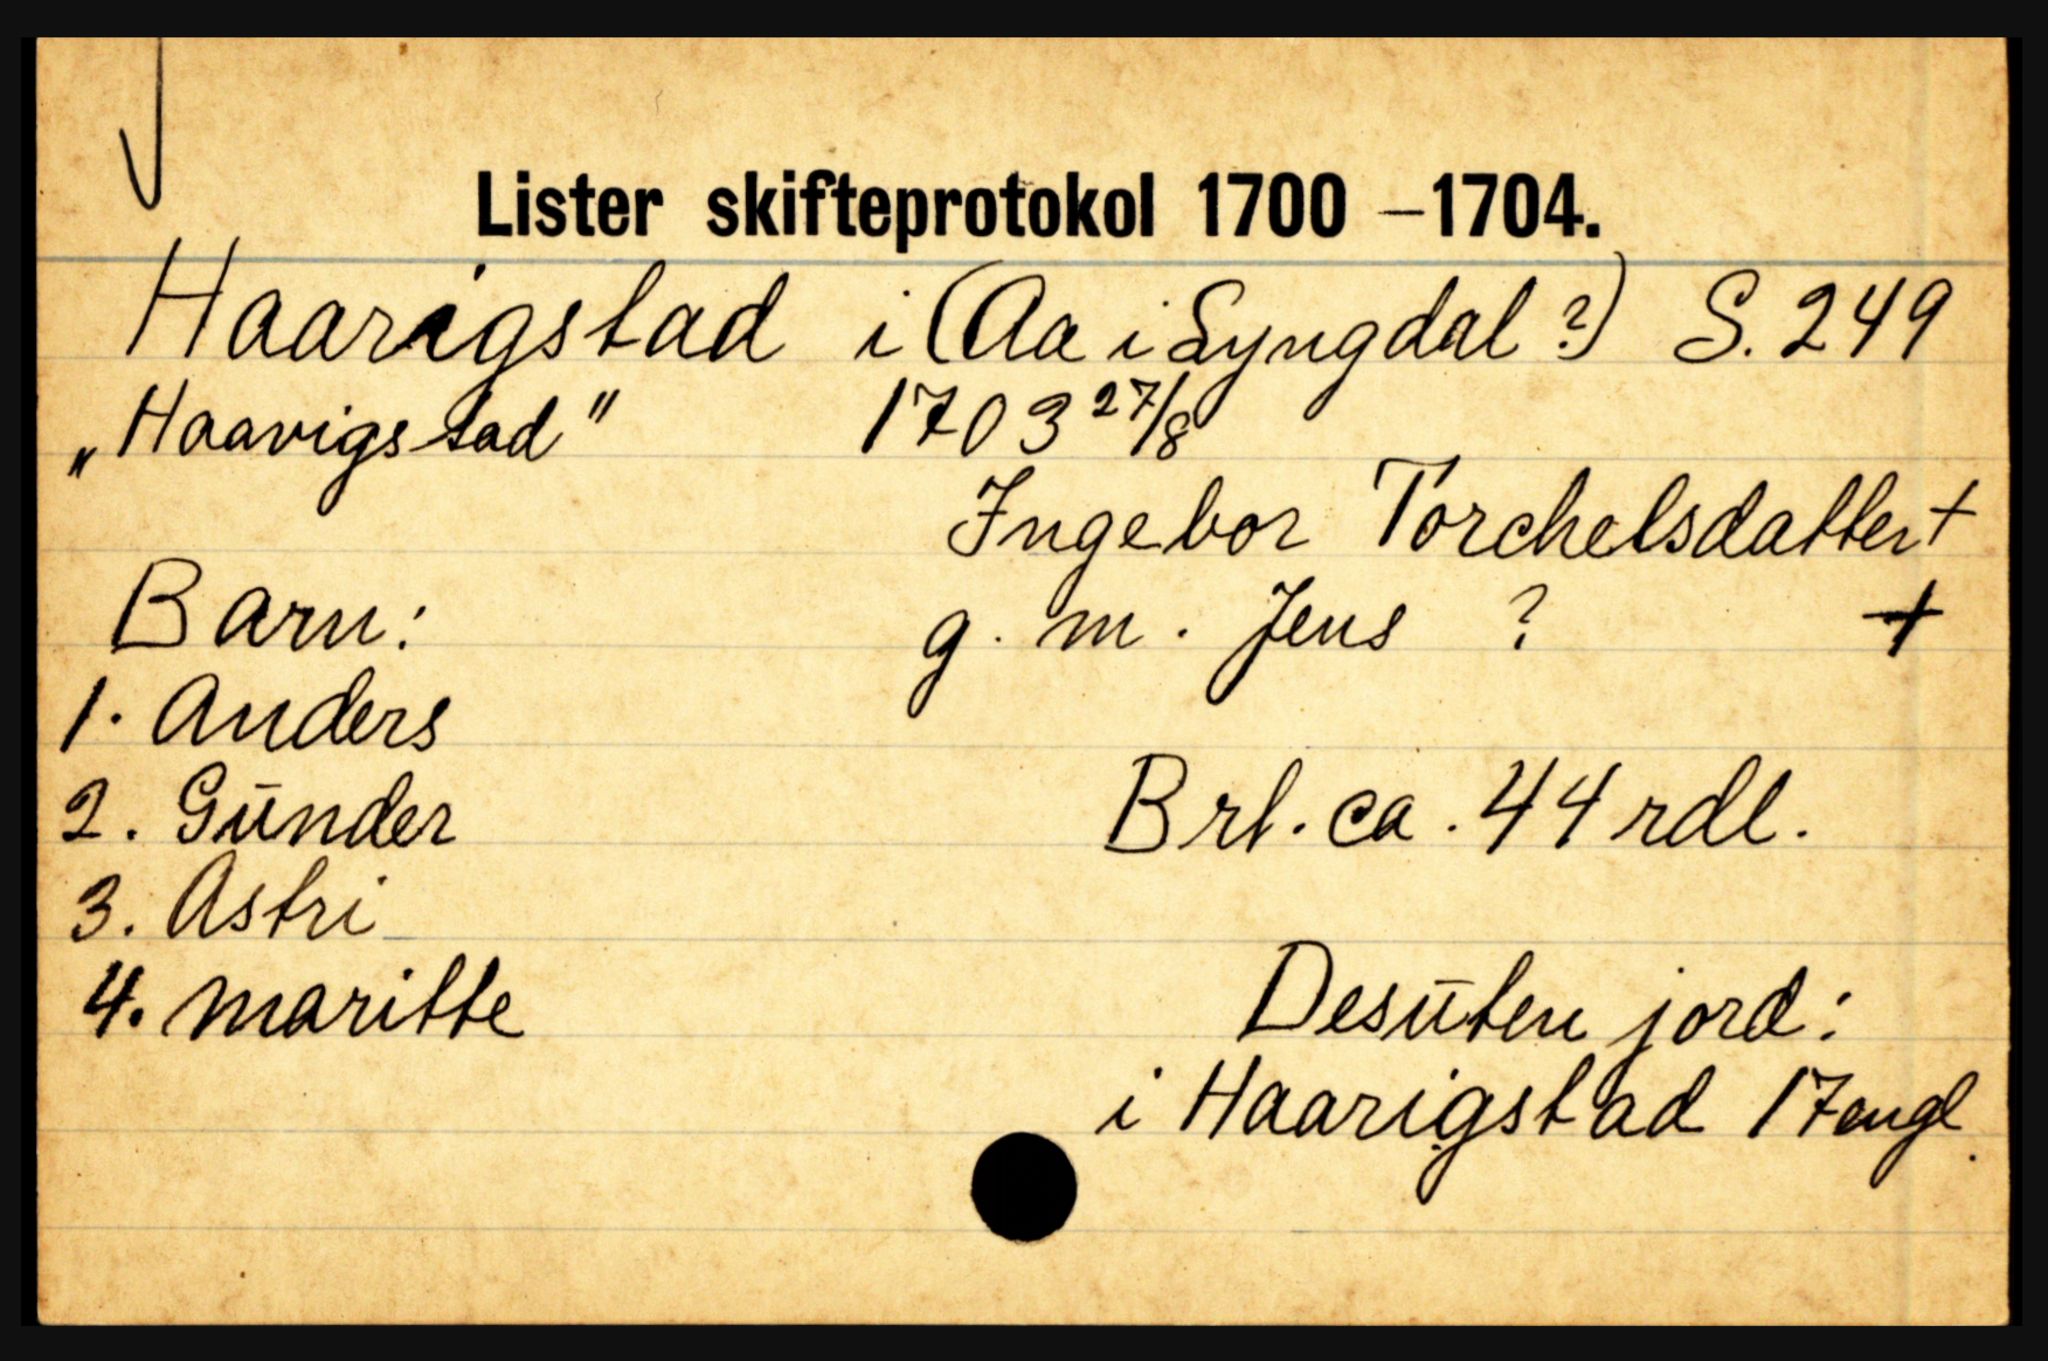 Lister skifteprotokol 1700 – 1704.
Haarigstad i (Aa i Lyngdal ?) S. 249
„Haavigstad" 1703 27/8
Ingebor Torchelsdatter +
Barn: g. m. Jens ? +
1. Anders
2. Gūnder Brt. ca. 44 rdl.
3. Astri
4. Maritte Desūten jord:
i Haarigstad 17 engl.